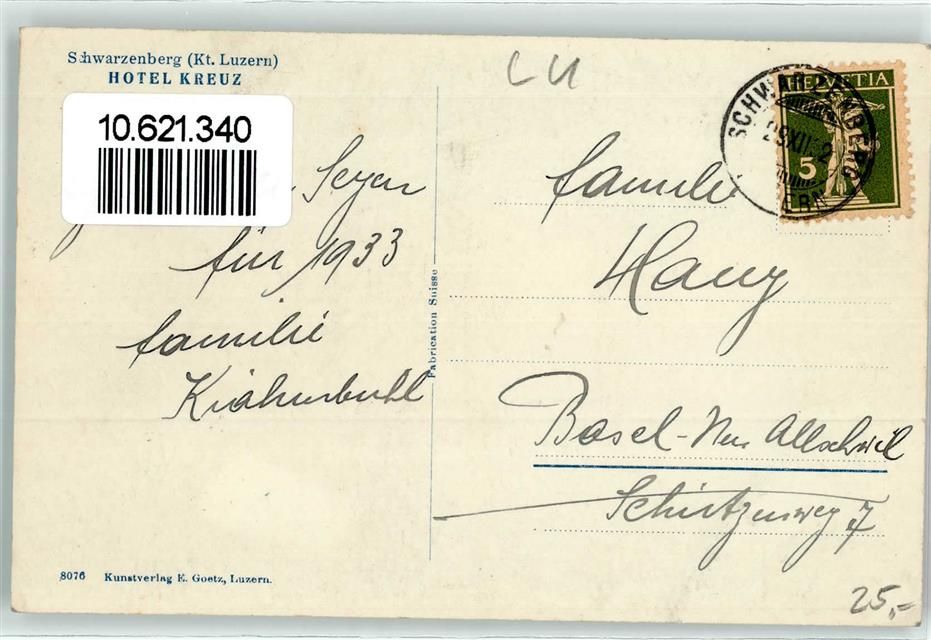 Schwarzenberg (Kt. Luzern)
HOTEL KREUZ
10.621.340
Segen
für 1933
familie
Krähenbühl
Fabrication Suisse
LU
HELVETIA
5
SCHWARZENBERG
familie
Hauy
Basel-Neu Allschwil
Schützenweg 7
8076 Kunstverlag E. Goetz, Luzern.
25,-